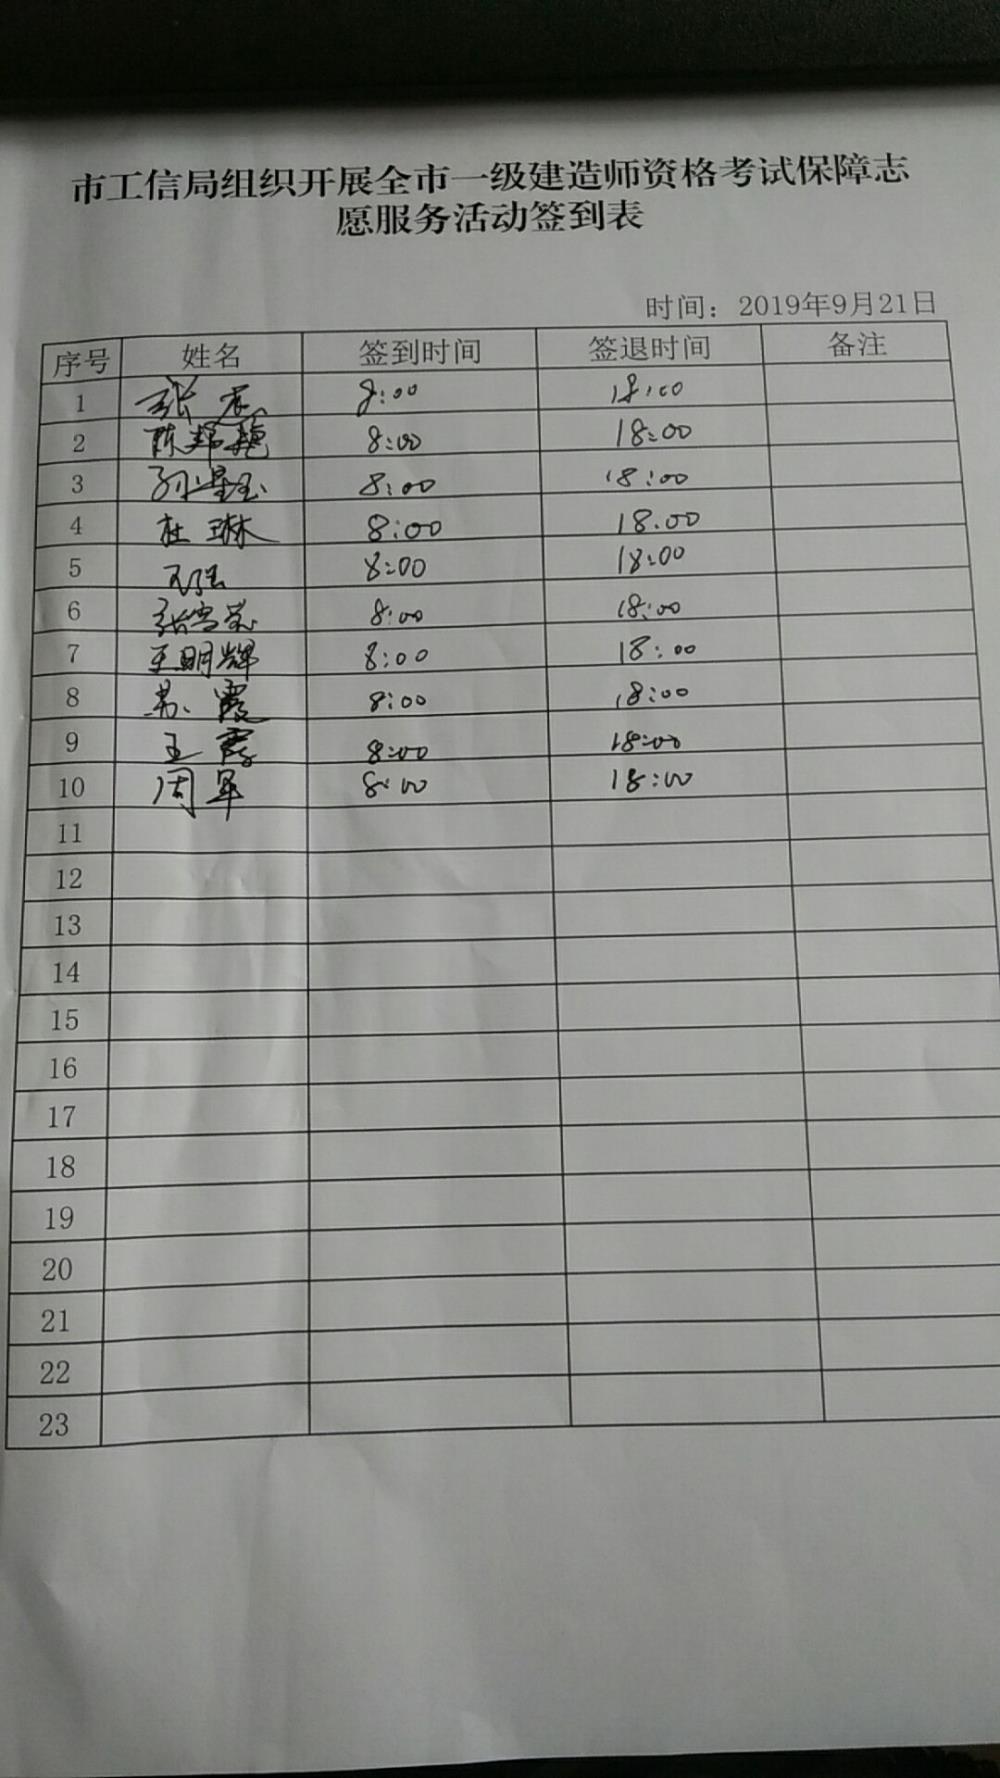 市工信局组织开展全市一级建造师资格考试保障志
愿服务活动签到表
时间：2019年9月21日
序号 姓名 签到时间 签退时间 备注
1 张 8:00 18:00
2 陈邦艳 8:00 18:00
3 孙星玉 8:00 18:00
4 杜琳 8:00 18.00
5 8:00 18:00
6 张雪 8:00 18:00
7 王明辉 8:00 18:00
8 苏霞 8:00 18:00
9 王霞 8:00 18:00
10 周军 8:00 18:00
11
12
13
14
15
16
17
18
19
20
21
22
23